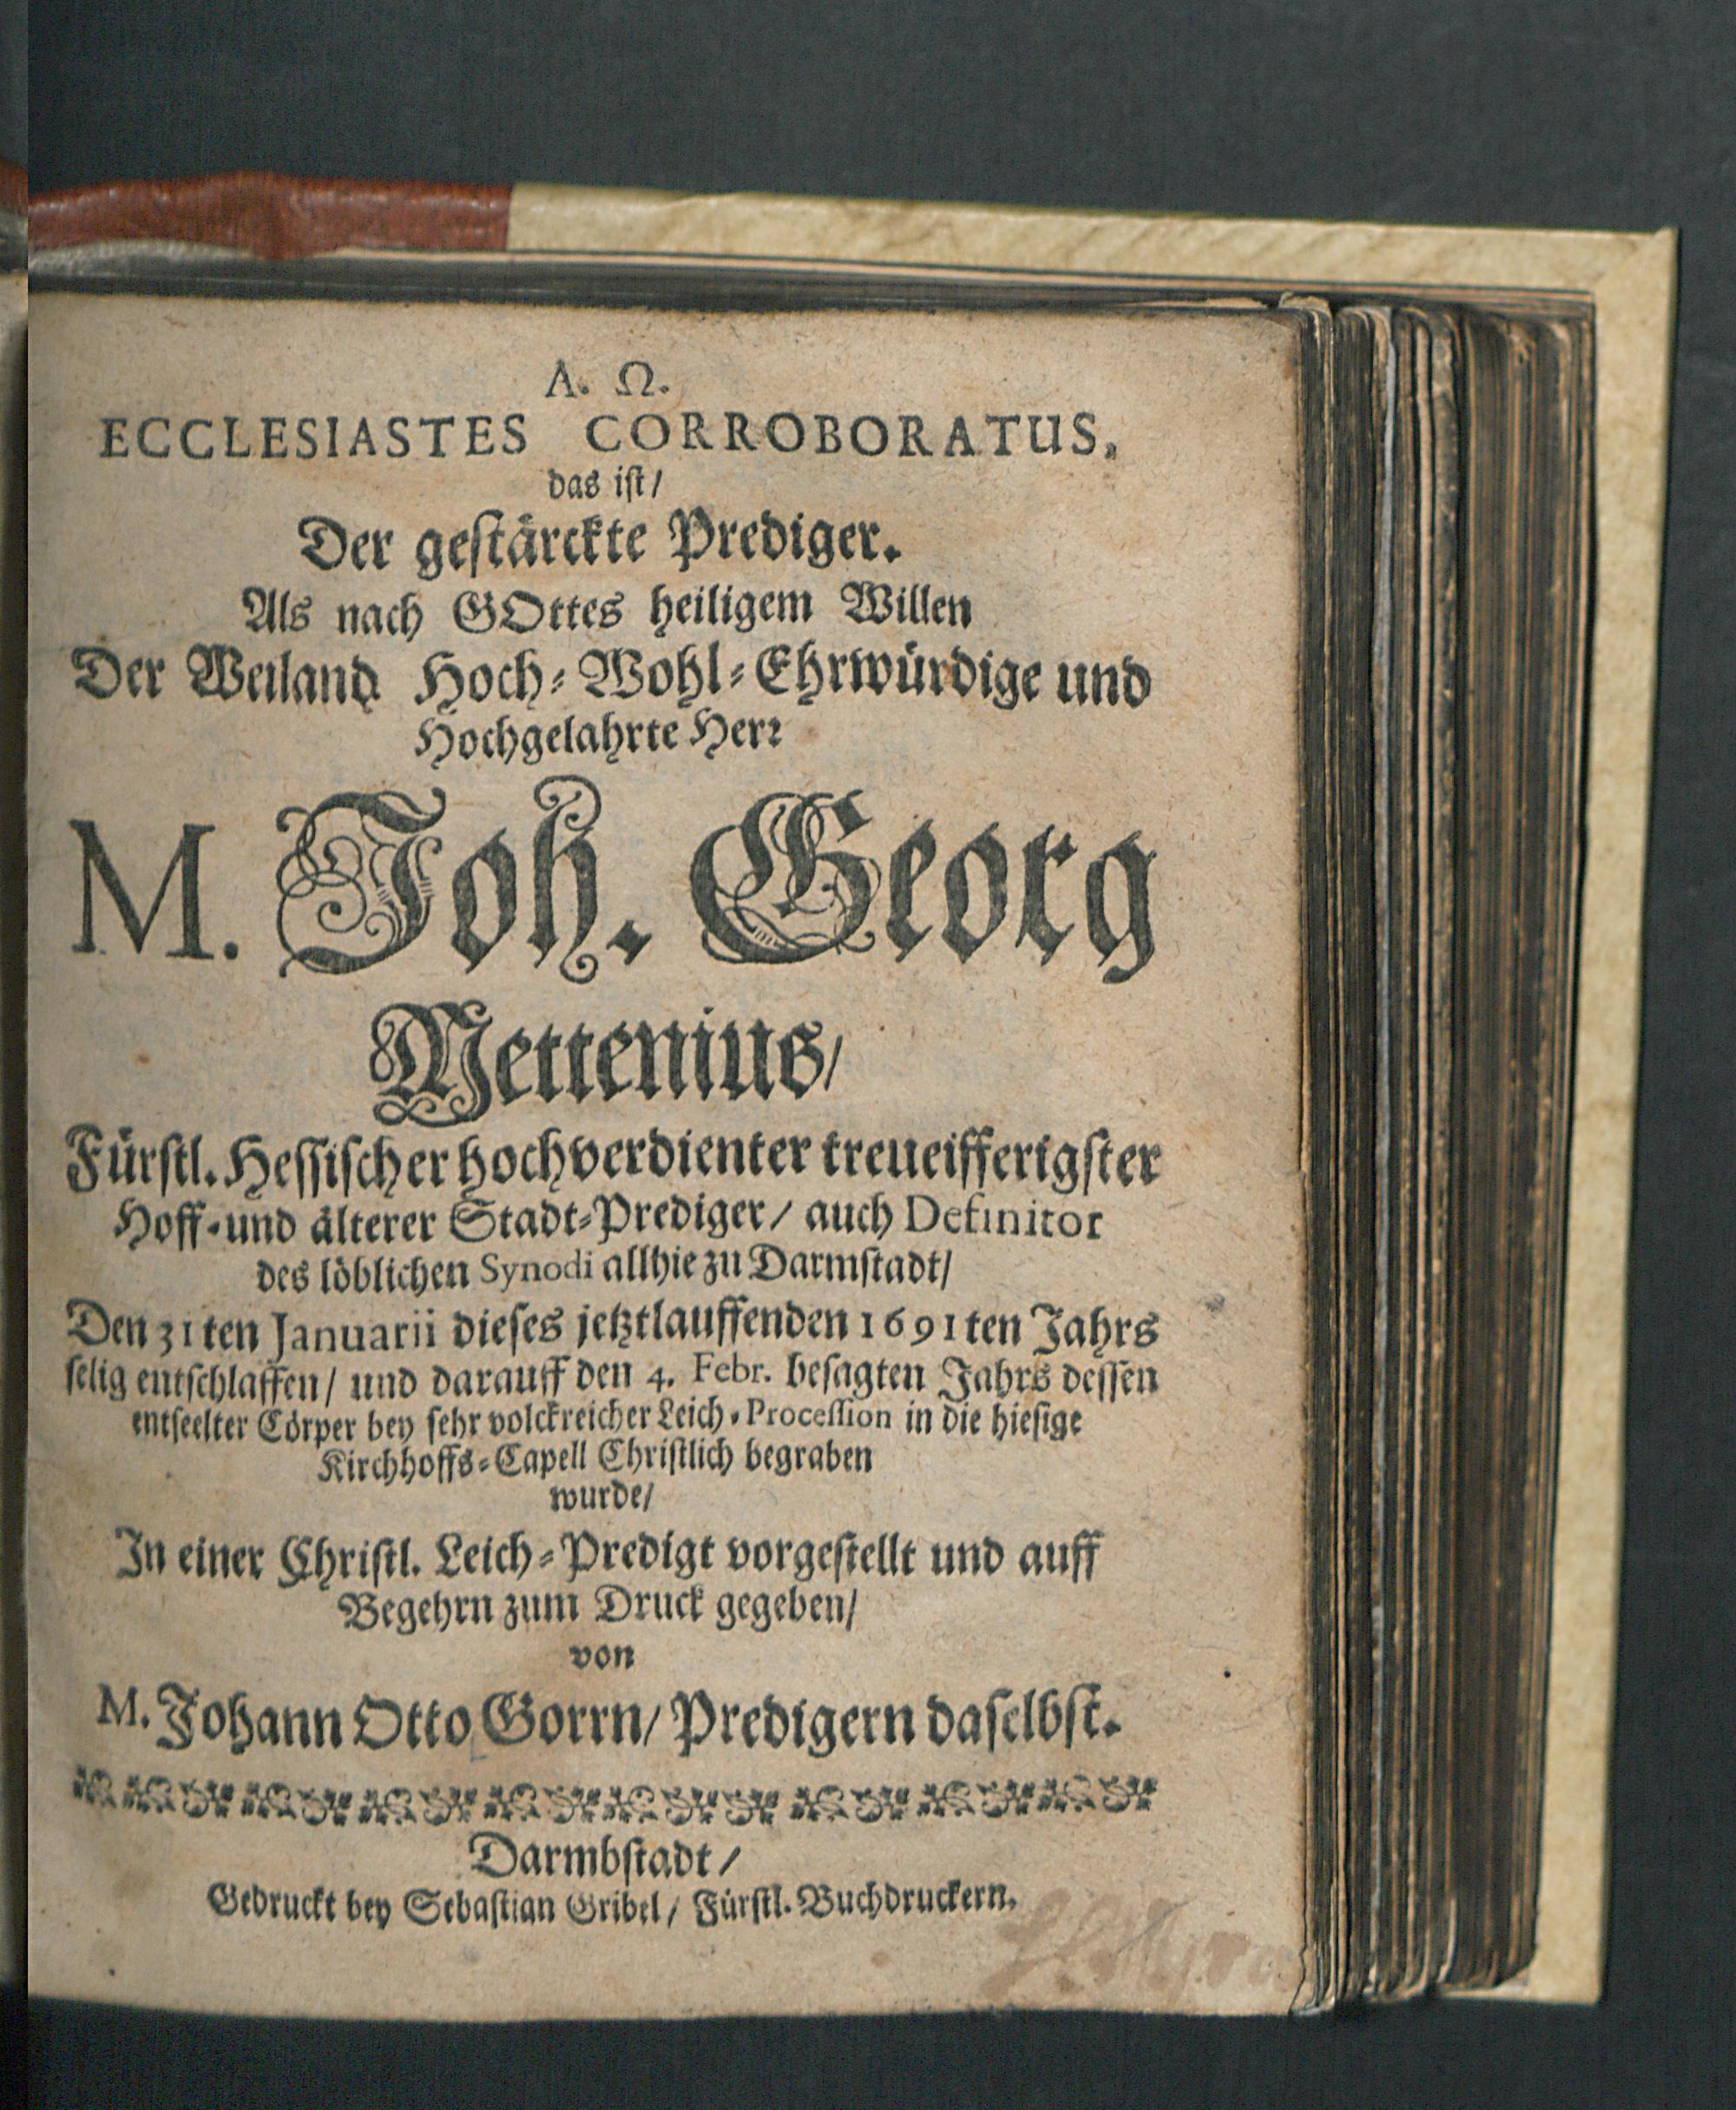 Λ. Ω.
ECCLESIASTES CORROBORATUS,
das ist/
Der gestärckte Prediger.
Als nach GOttes heiligem Willen
Der Weiland Hoch-Wohl-Ehrwürdige und
Hochgelahrte Herr
M. Joh. Georg
Mettenius/
Fürstl. Hessischer hochverdienter treueifferigster
Hoff- und älterer Stadt-Prediger/ auch Definitor
des löblichen Synodi allhie zu Darmstadt/
Den 31ten Januarii dieses jetztlauffenden 1691ten Jahrs
selig entschlaffen/ und darauff den 4. Febr. besagten Jahrs dessen
entseelter Cörper bey sehr volckreicher Leich-Procession in die hiesige
Kirchhoffs-Capell Christlich begraben
wurde/
In einer Christl. Leich-Predigt vorgestellt und auff
Begehrn zum Druck gegeben/
von
M. Johann Otto Gorrn/ Predigern daselbst.
Darmbstadt/
Gedruckt bey Sebastian Gribel/ Fürstl. Buchdruckern.